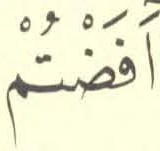 أَفَضْتُمْ